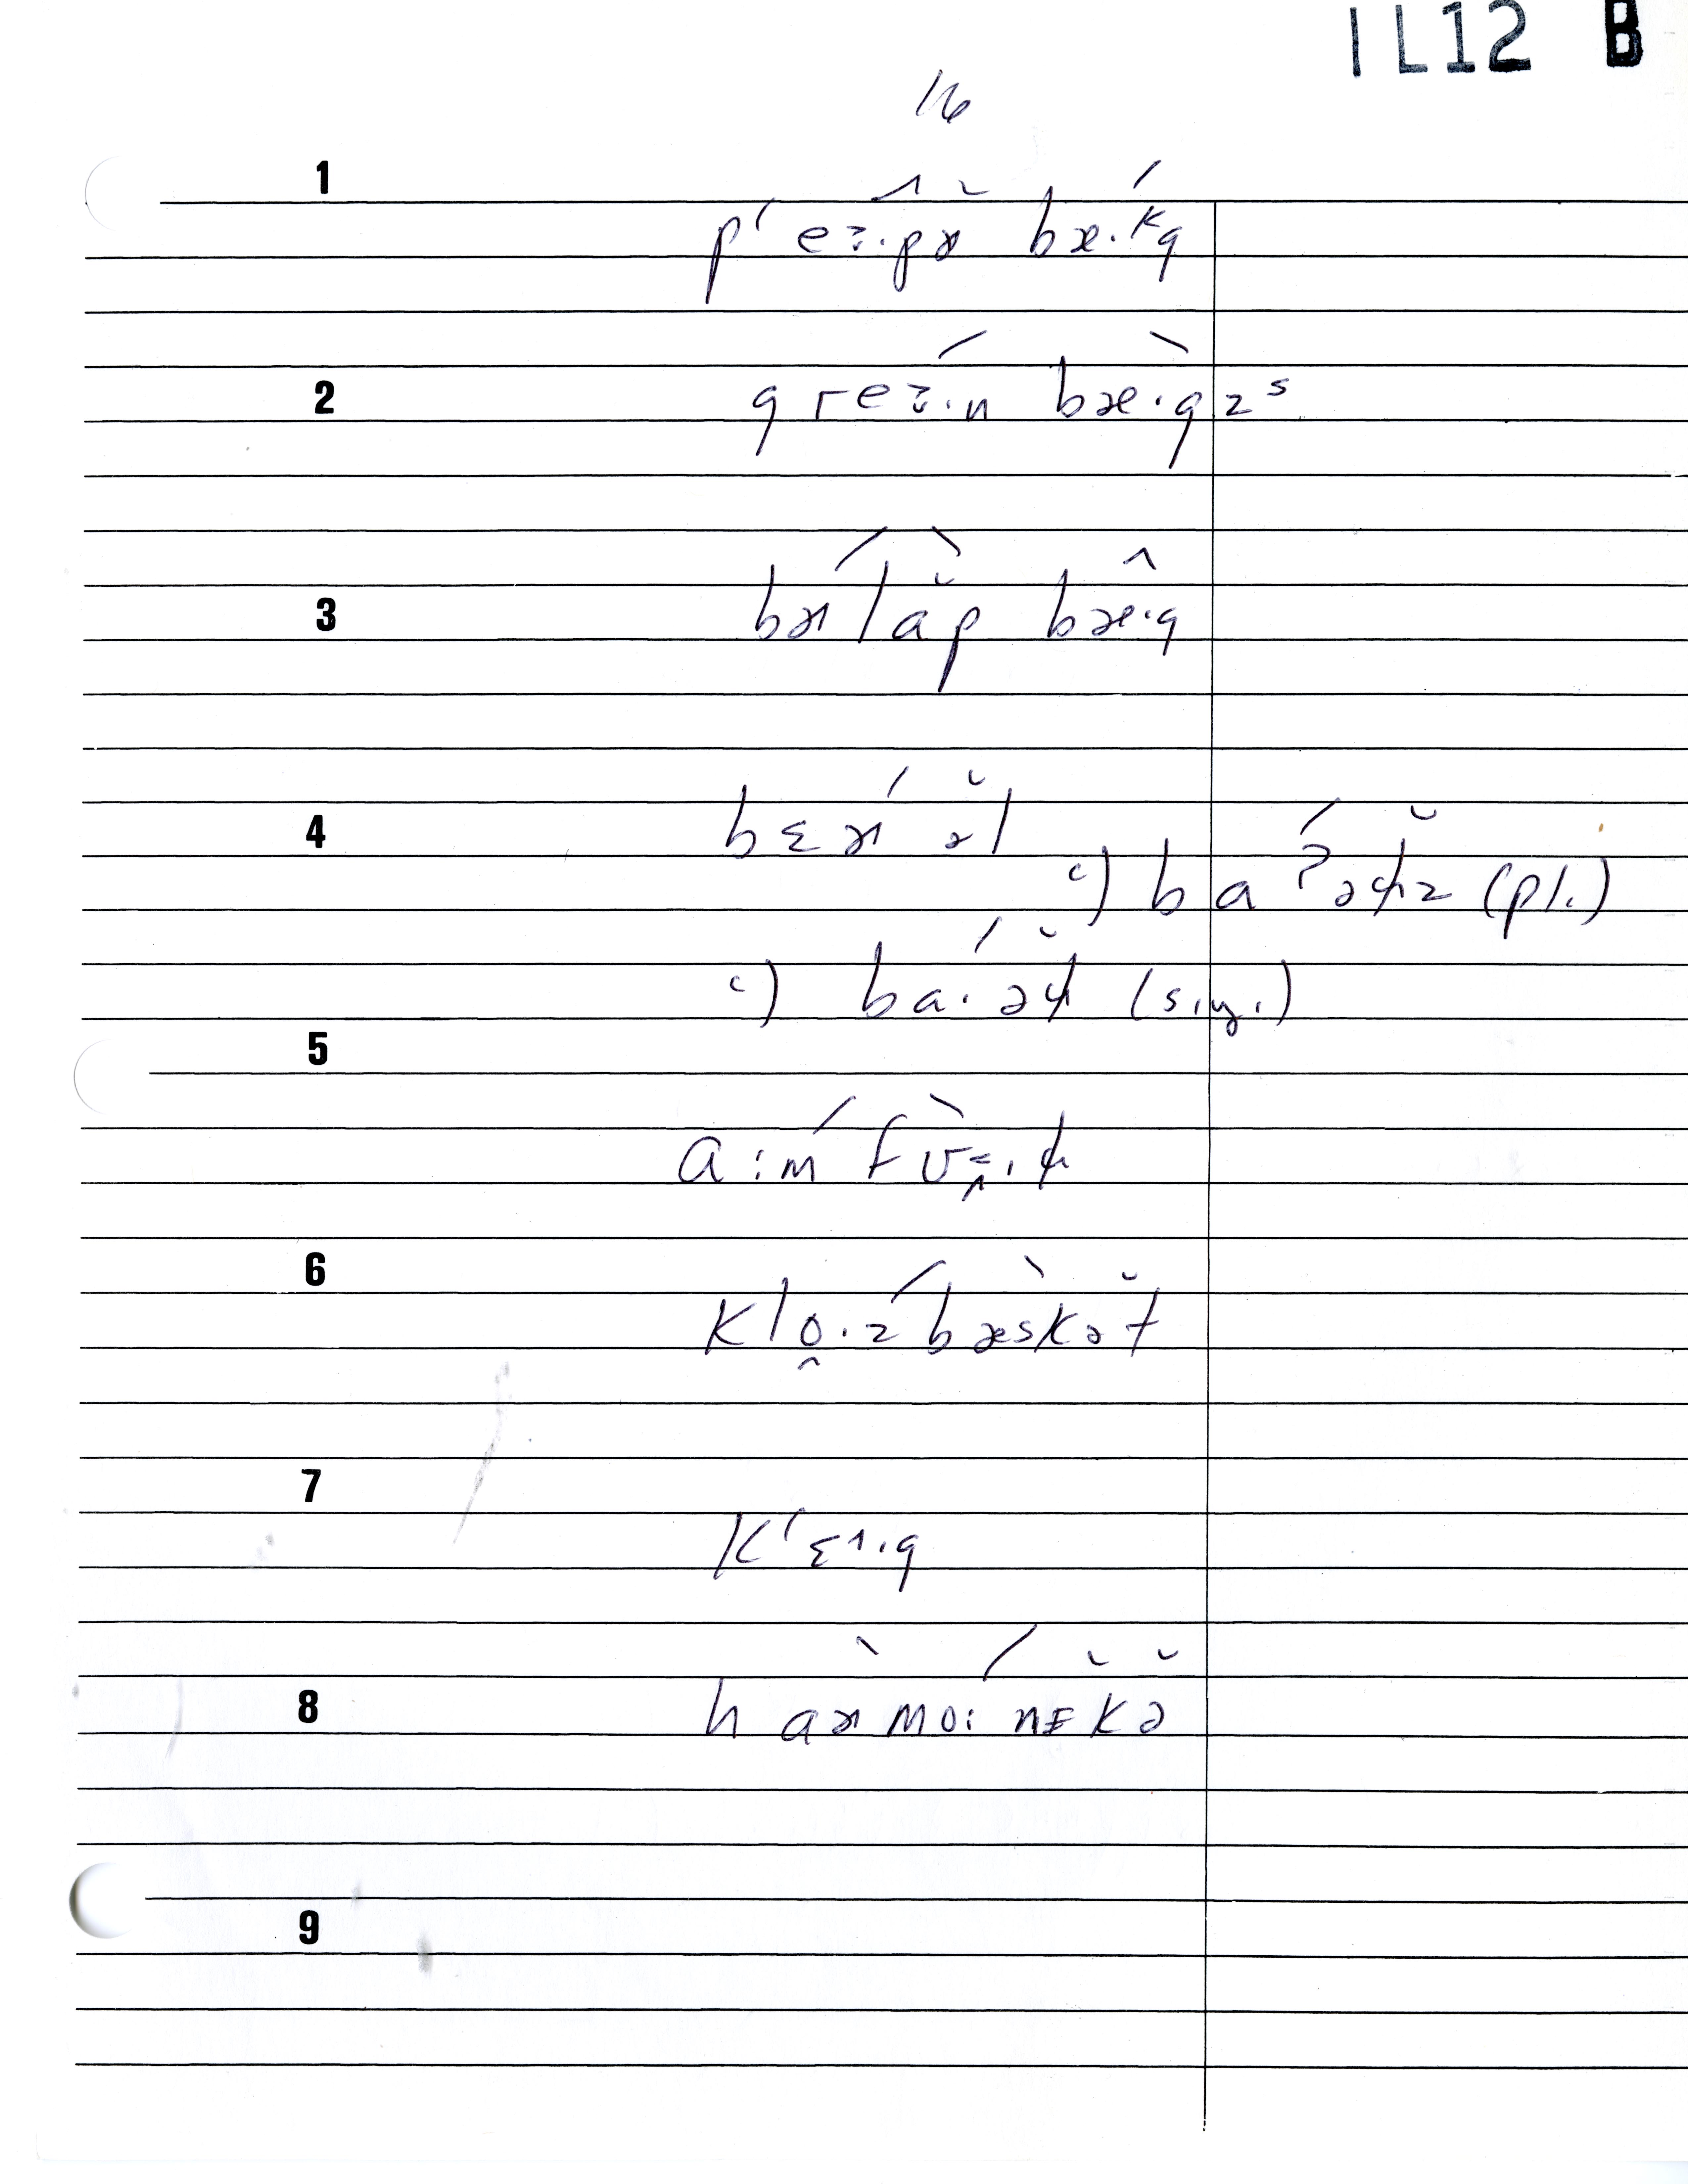 1L12 B
16
1
pʻ eɜ·pɚ bæ·ᵏg
2
greɜ·n bæ·gzˢ
3
bɚlăp bæ·g
4
bɛɚ əl
c) baʔəɫz (pl.)
c) ba·əɫ (sing.)
5
a:m fʊ·ɫ
6
klo̭·z bæskət
7
kʻɛɪ·g
8
haɚmo:nɪkə
9